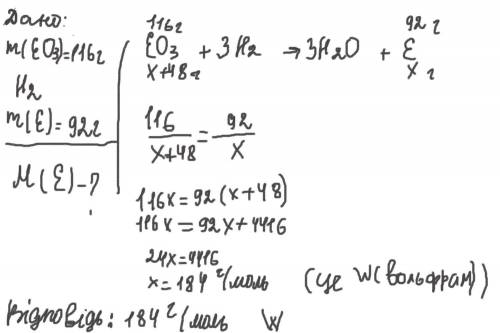 Дано:
m(EO₃)=116г
H₂
m(E)=92г
M(E)-?
116г 92г
EO₃ + 3H₂ → 3H₂O + E
x+48г x г
116/x+48 = 92/x
116x=92(x+48)
116x=92x+4416
24x=4416
x=184 г/моль (це W(вольфрам))
Відповідь: 184 г/моль W